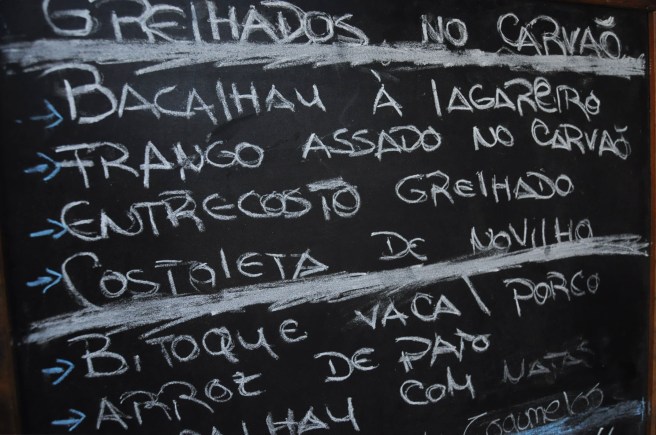 GRELHADOS NO CARVAÕ
BACALHAU À LAGAREIRO
FRANGO ASSADO NO CARVAÕ
ENTRECOSTO GRELHADO
COSTOLETA DE NOVILHO
BITOQUE VACA/PORCO
ARROZ DE PATO
BACALHAU COM NATAS
Cogumelos